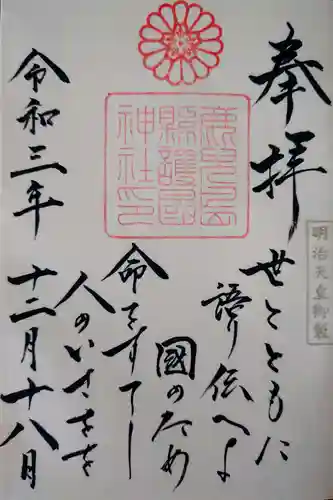 奉拝
明治天皇御製
世とともに
語り伝へよ
国のため
命をすてし
人のいさをを
令和三年
十二月十八日
鹿児島
縣護國
神社印